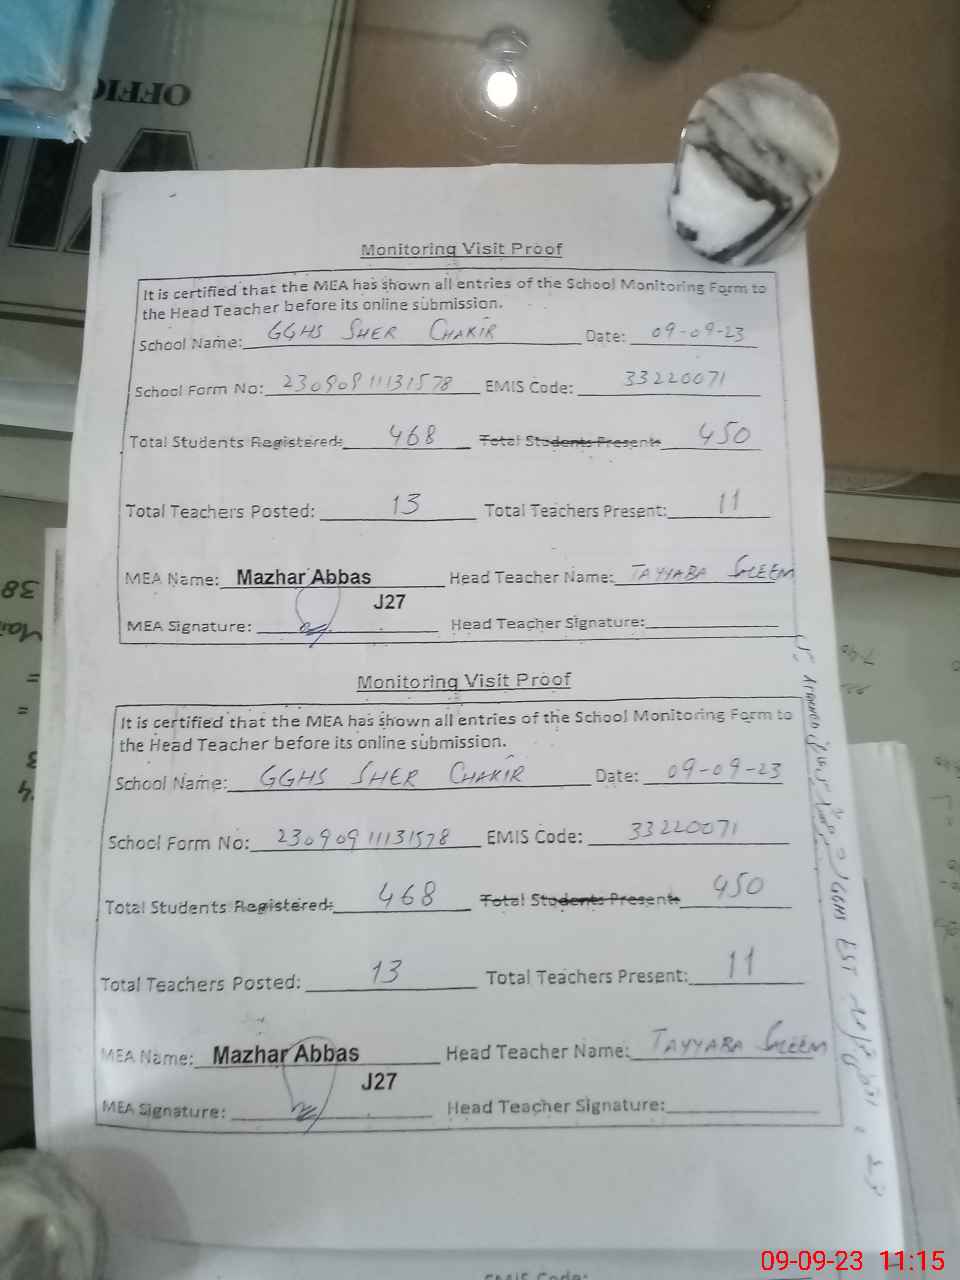 OFFIC
Monitoring Visit Proof
It is certified that the MEA has shown all entries of the School Monitoring Form to
the Head Teacher before its online submission.
School Name: GGHS SHER CHAKIR Date: 09-09-23
School Form No: 23090911131578 EMIS Code: 33220071
Total Students Registered: 468 Total Students Present: 450
Total Teachers Posted: 13 Total Teachers Present: 11
MEA Name: Mazhar Abbas Head Teacher Name: TAYYABA SALEEM
J27
MEA Signature: Head Teacher Signature:
Monitoring Visit Proof
It is certified that the MEA has shown all entries of the School Monitoring Form to
the Head Teacher before its online submission.
School Name: GGHS SHER CHAKIR Date: 09-09-23
School Form No: 23090911131578 EMIS Code: 33220071
Total Students Registered: 468 Total Students Present: 450
Total Teachers Posted: 13 Total Teachers Present: 11
MEA Name: Mazhar Abbas Head Teacher Name: TAYYABA SALEEM
J27
MEA Signature: Head Teacher Signature:
GGHS EST
EMIS Code:
38
09-09-23 11:15